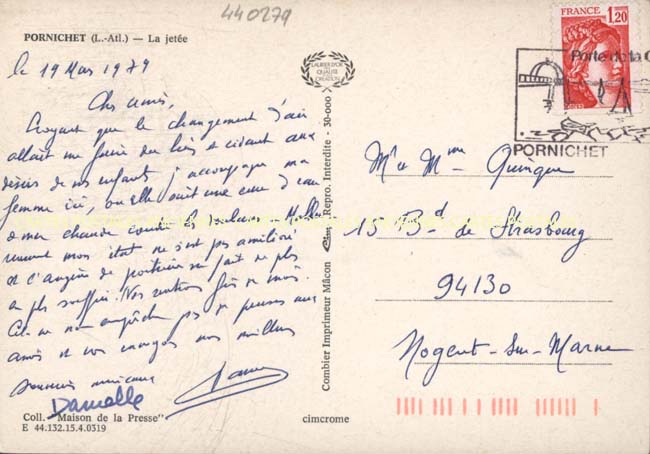 440279
PORNICHET (L.-Atl.) — La jetée
le 19 Mars 1979
Chers amis,
Croyant que le changement d'air
allait me faire du bien et cédant aux
désirs de nos enfants j'accompagne ma
femme ici, où elle suit une cure d'eau
de mer chaude contre les douleurs.
mon état ne s'est pas amélioré
et l'angine de poitrine me fait de plus
en plus souffrir. Nos
Cela ne nous empêche pas de penser aux
amis et vous envoyons nos meilleurs
souvenirs
Danielle
Coll. "Maison de la Presse"
E 44.132.15.4.0319
LAURIER D'OR
DE LA QUALITÉ
Combier Imprimeur Mâcon Cim Repro. Interdite - 30-000
cimcrome
FRANCE
1,20
Porte de la C
PORNICHET
Mr et Mme Quinque
15 Bd de Strasbourg
94130
Nogent-sur-Marne